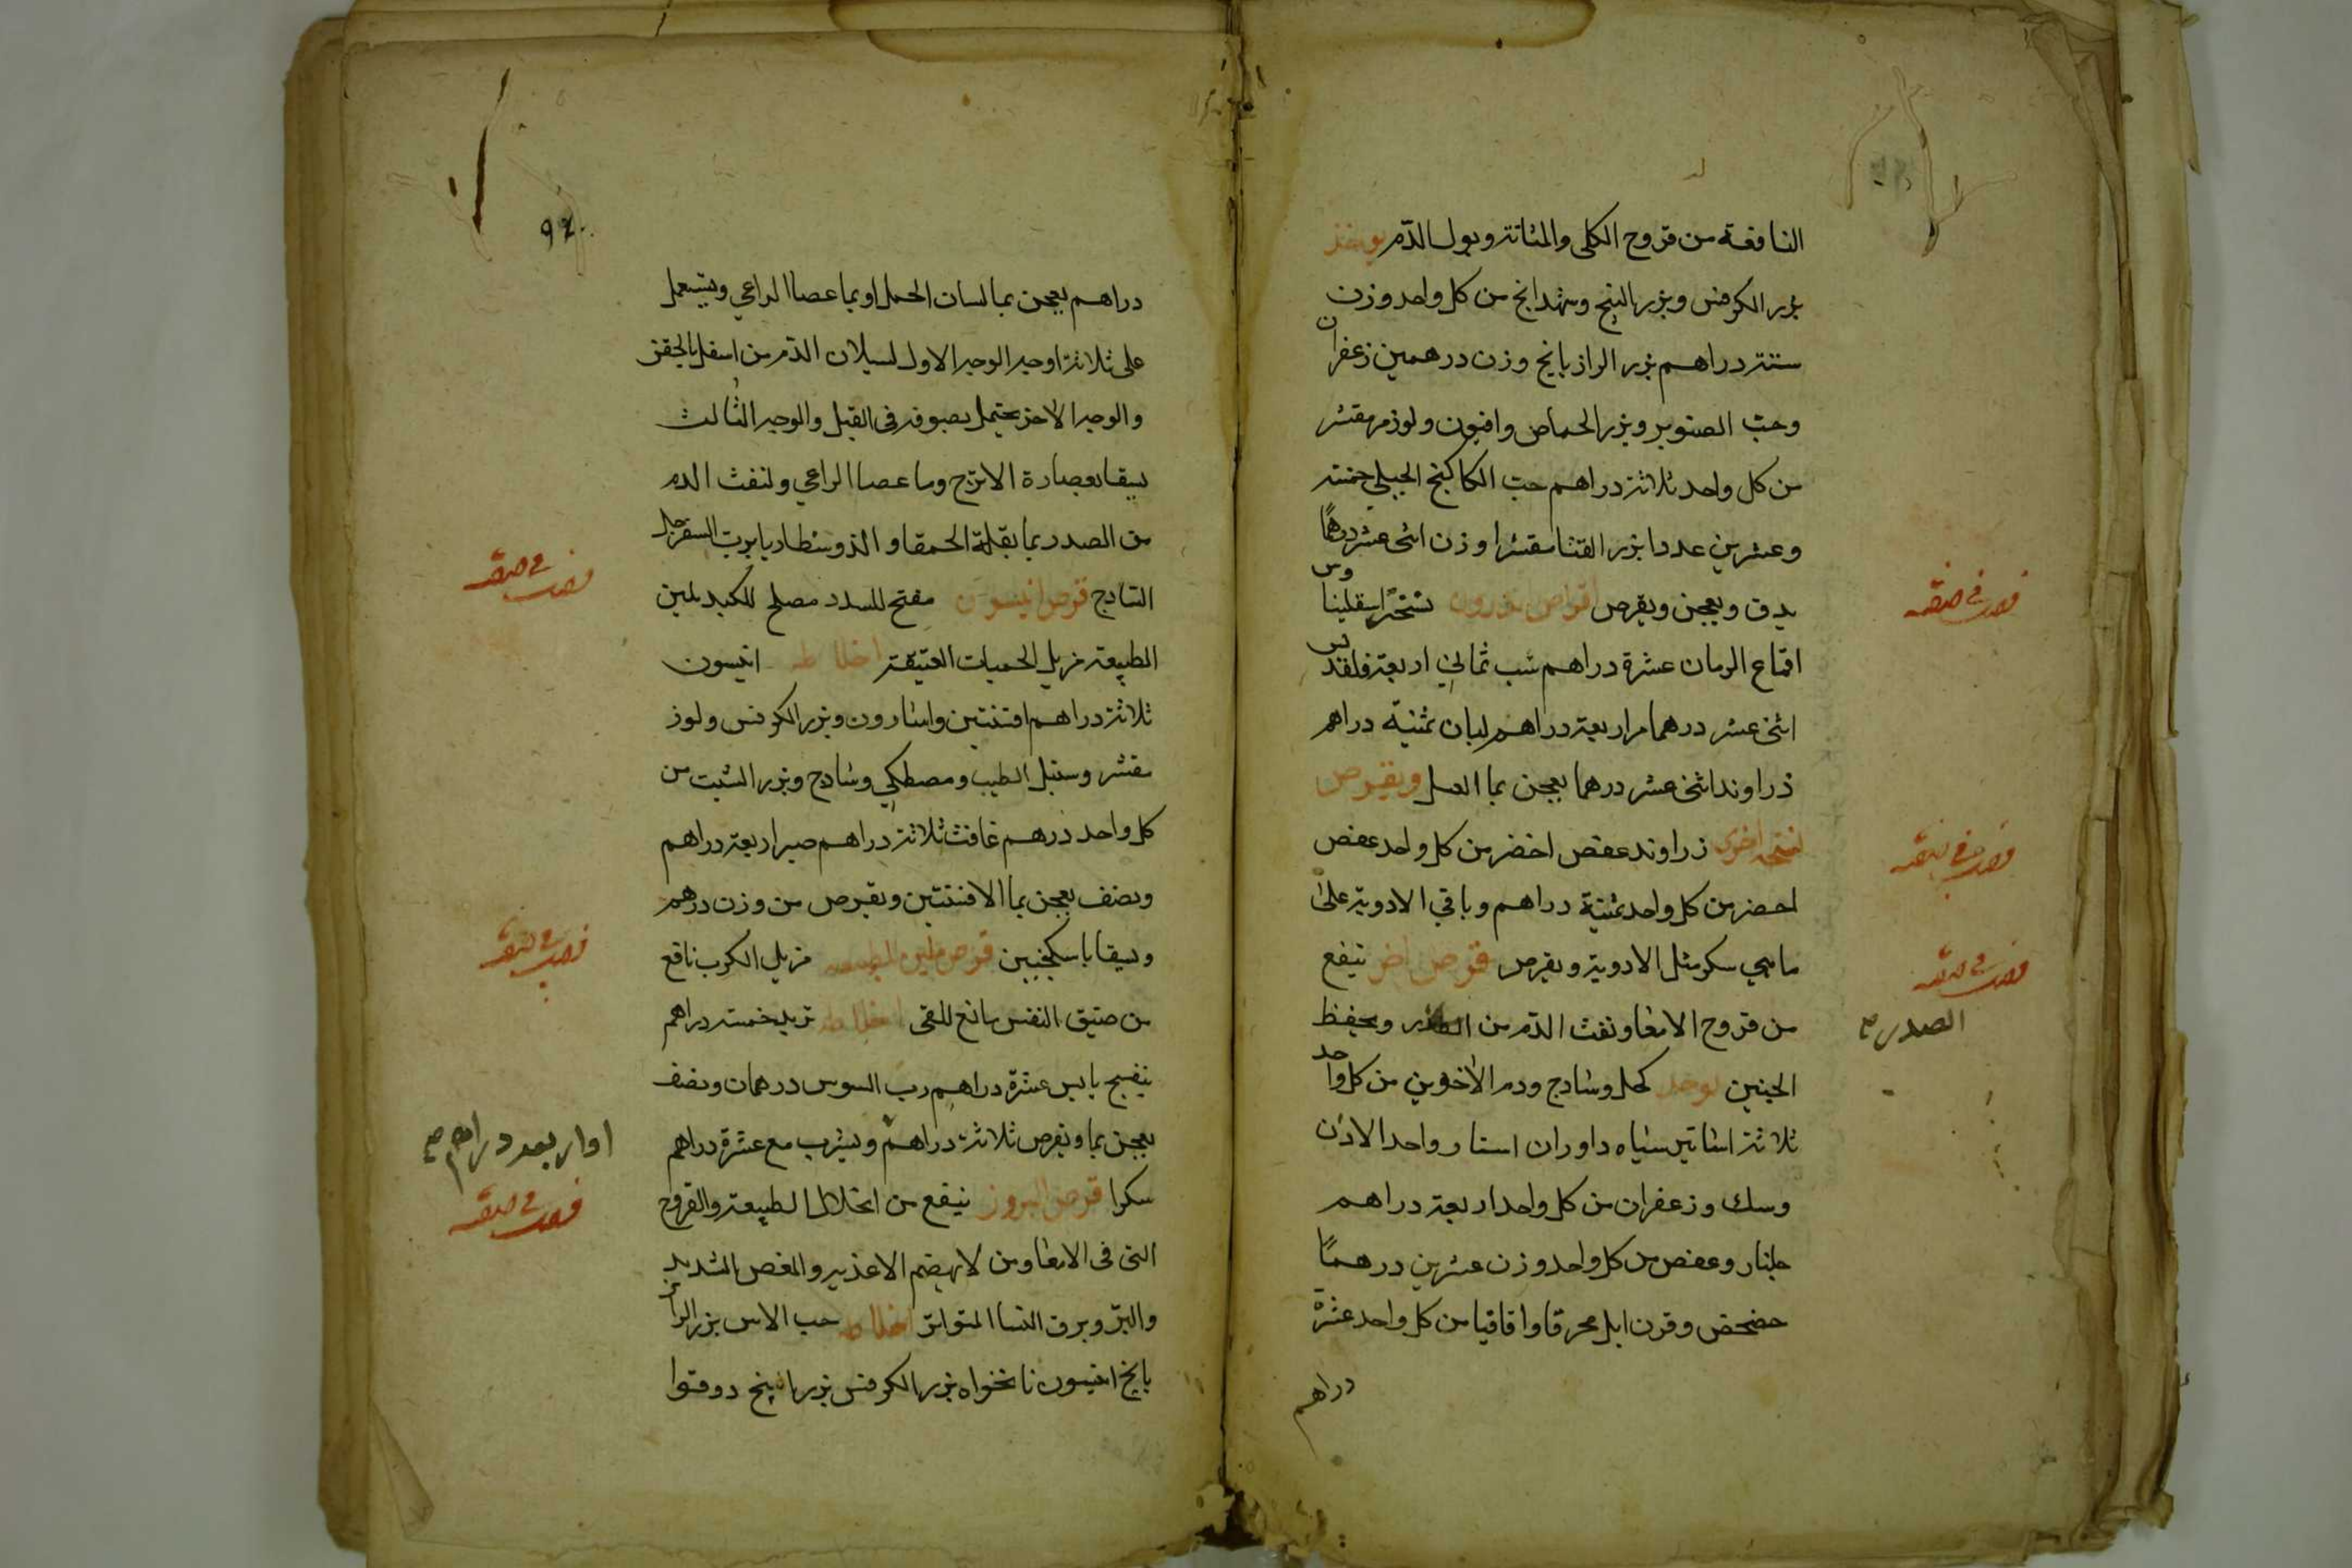 النافعة من قروح الكلى والمثانة وبول الدم يوخذ
بزر الكرفس وبزر البنج وشهدانج من كل واحد وزن
ستة دراهم بزر الرازيانج وزن درهمين زعفران
وحب الصنوبر وبزر الحماض وافيون ولوز مر مقشر
من كل واحد ثلاثة دراهم حب الكاكنج الجبلي خمسة
وعشرين عددا بزر القثا مقشرا وزن اثنى عشر درهمًا
يدق ويعجن ويقرص اقراص
اقماع الرمان عشرة دراهم شب ثماني اربعة فلفديس
اثنى عشر درهما مر اربعة دراهم لبان ثمنية دراهم
زراوند اثنى عشر درهما يعجن بما العسل ويقرص
نسخة اخرى زراوند عفص اخضر من كل واحد عفص
اخضر من كل واحد ثمنية دراهم وباقي الادوية على
ماهي سكر مثل الادوية ويقرص قرص اخر ينفع
من قروح الامعا ونفث الدم من الصدر ويحفظ
الصدر
الجنين يوخذ كحل وشادج ودم الأخوين من كل واحد
ثلاثة اساتير سياه داوران استار واحد الاذن
وسك وزعفران من كل واحد اربعة دراهم
جلنار وعفص من كل واحد وزن عشرين درهمًا
حضحض وقرن ايل محرق واقاقيا من كل واحد عشرة
دراهم
92
دراهم يعجن بما لسان الحمل او بما عصا الراعي ويستعمل
على ثلاثة اوجه الوجه الاول لسيلان الدم من اسفل بالحقن
والوجه الاخر يحتمل بصوفه فى القبل والوجه الثالث
يسقا بعصارة الاترج وما عصا الراعي ولنفث الدم
من الصدر بما بقلة الحمقا و الذوسنطاريا برب السفرجل
الساذج قرص انيسون مفتح للسدد مصلح للكبد يلين
الطبيعة مزيل الحميات العتيقة اخلاطه انيسون
ثلاثة دراهم افسنتين واسارون وبزر الكرفس ولوز
مقشر وسنبل الطيب ومصطكي وسادج وبزر الشبت من
كل واحد درهم غافث ثلاثة دراهم صبر اربعة دراهم
ونصف يعجن بما الافسنتين ويقرص من وزن درهم
ويسقا باسكنجبين قرص ملين الطبيعه مزيل الكرب نافع
من ضيق النفس مانع للقى اخلاطه تربد خمسة دراهم
بنفسج يابس عشرة دراهم رب السوس درهمان ونصف
يعجن بما ويقرص ثلاثة دراهم ويشرب مع عشرة دراهم
او اربعه دراهم
سكرا قرص البزور ينفع من انحلال الطبيعة والقروح
التى فى الامعا ومن لا يهضم الاغذيه والمغص الشديد
والبر وبرق النسا المتواتر اخلاطه حب الاس بزر الراز
يانج انيسون نانخواه بزر الكرفس بزر البنج دوقوا